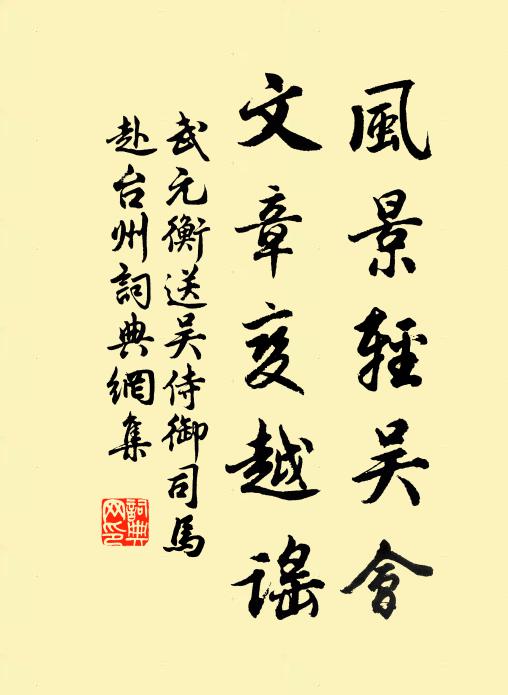 風景輕吴會
文章变越謠
武元衡送吴侍御司馬
赴台州詞典網集
詞典
网印